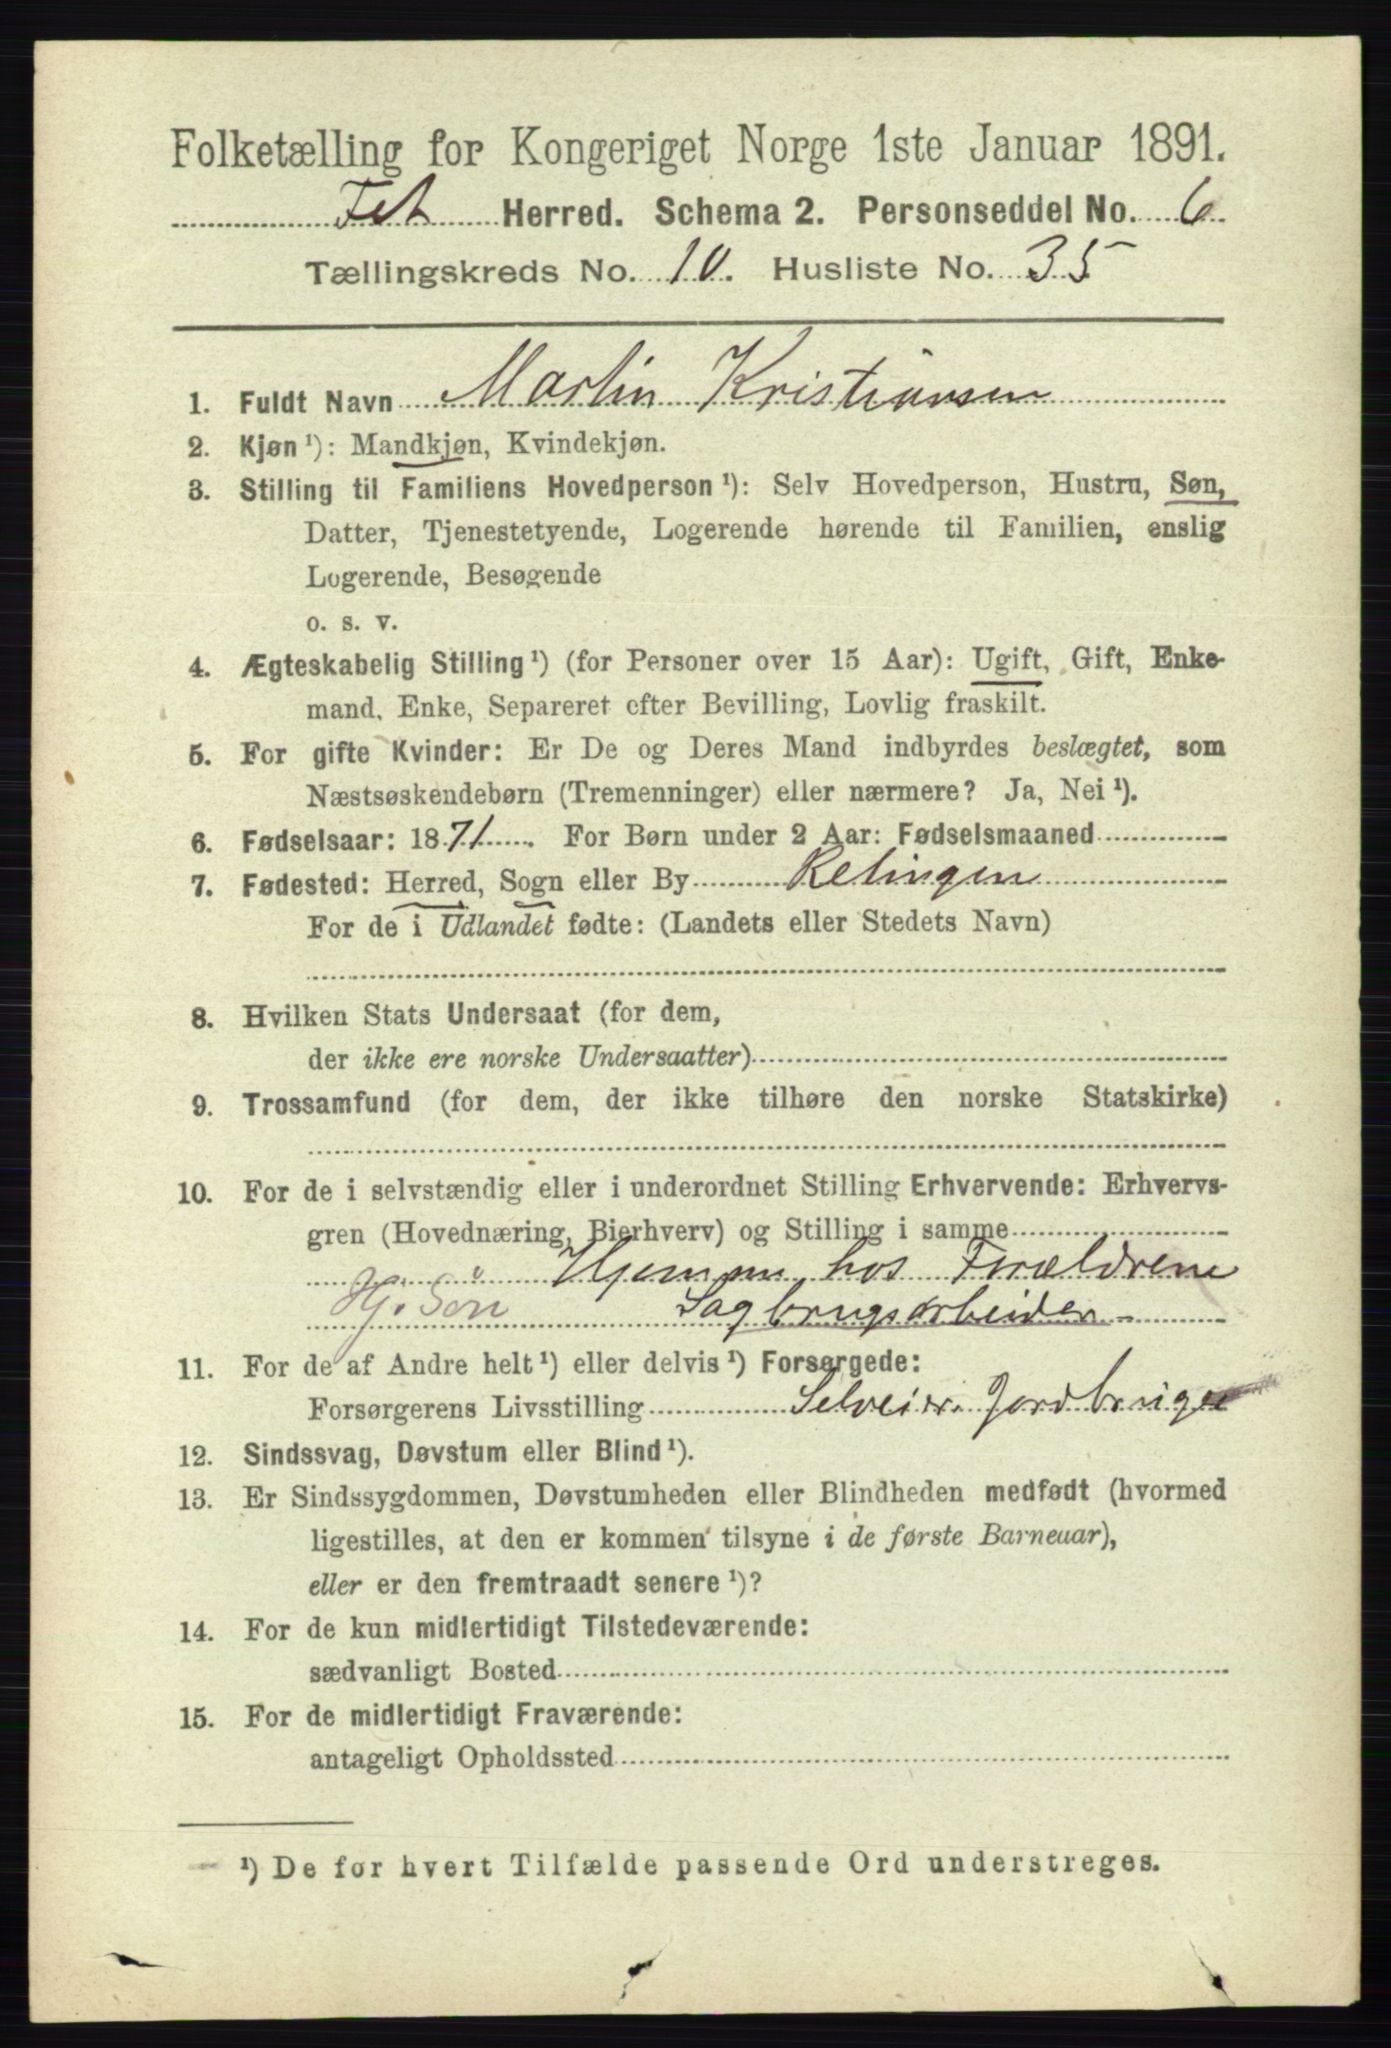 Folketælling for Kongeriget Norge 1ste Januar 1891.
Fet Herred. Schema 2. Personseddel No. 6
Tællingskreds No. 10. Husliste No. 35
1. Fuldt Navn Martin Kristiansen
2. Kjøn ¹): Mandkjøn, Kvindekjøn.
3. Stilling til Familiens Hovedperson ¹): Selv Hovedperson, Hustru, Søn,
Datter, Tjenestetyende, Logerende hørende til Familien, enslig
Logerende, Besøgende
o. s. v.
4. Ægteskabelig Stilling ¹) (for Personer over 15 Aar): Ugift, Gift, Enke-
mand, Enke, Separeret efter Bevilling, Lovlig fraskilt.
5. For gifte Kvinder: Er De og Deres Mand indbyrdes beslægtet, som
Næstsøskendebørn (Tremenninger) eller nærmere? Ja, Nei ¹).
6. Fødselsaar: 1871. For Børn under 2 Aar: Fødselsmaaned
7. Fødested: Herred, Sogn eller By Relingen
For de i Udlandet fødte: (Landets eller Stedets Navn)
8. Hvilken Stats Undersaat (for dem,
der ikke ere norske Undersaatter)
9. Trossamfund (for dem, der ikke tilhøre den norske Statskirke)
10. For de i selvstændig eller i underordnet Stilling Erhvervende: Erhvervs-
gren (Hovednæring, Bierhverv) og Stilling i samme
Hjemme hos Forældrene
Hj. Søn Sagbrugsarbeider
11. For de af Andre helt ¹) eller delvis ¹) Forsørgede:
Forsørgerens Livsstilling Selveier. Jordbruger
12. Sindssvag, Døvstum eller Blind ¹).
13. Er Sindssygdommen, Døvstumheden eller Blindheden medfødt (hvormed
ligestilles, at den er kommen tilsyne i de første Barneaar),
eller er den fremtraadt senere ¹)?
14. For de kun midlertidigt Tilstedeværende:
sædvanligt Bosted
15. For de midlertidigt Fraværende:
antageligt Opholdssted
¹) De for hvert Tilfælde passende Ord understreges.